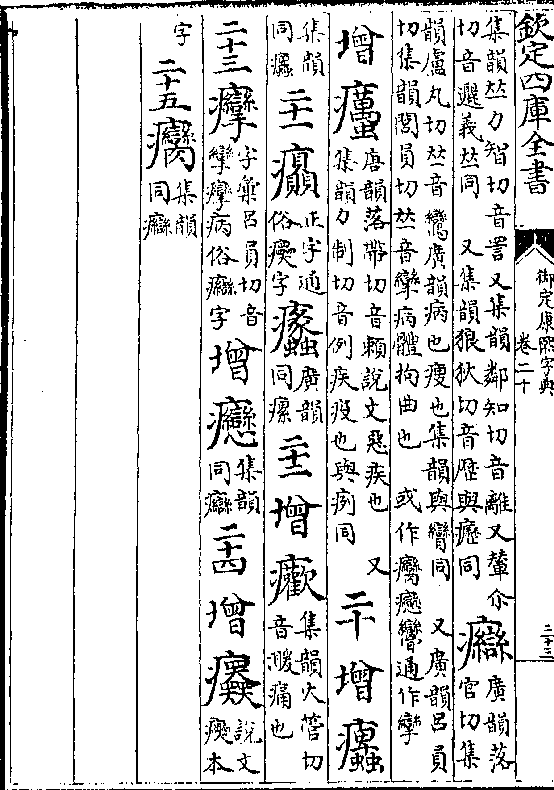 欽定四庫全書
御定康熙字典
卷二十
二十三
集韻𠀤力智切音詈又集韻鄰知切音離又輦尒
切音邐義𠀤同 又集韻狼狄切音歷與癧同 癴廣韻落官切集
韻盧丸切𠀤音鸞廣韻病也瘦也集韻與臠同 又廣韻呂員
切集韻閭員切𠀤音攣病體拘曲也 或作癵癴臠通作攣
增 癘唐韻落帶切音賴說文惡疾也 又
集韻力制切音例疾疫也與痢同 二十 增 癳
集韻同癳 二十一 癲正字通俗瘨字 廣韻同瘰 二十二 增 癨集韻火管切音暖痛也
二十三 癴字彙呂員切音攣癴病俗癵字 增 癴集韻同癵 二十四 增 說文癭本
字 二十五 癵集韻同癴